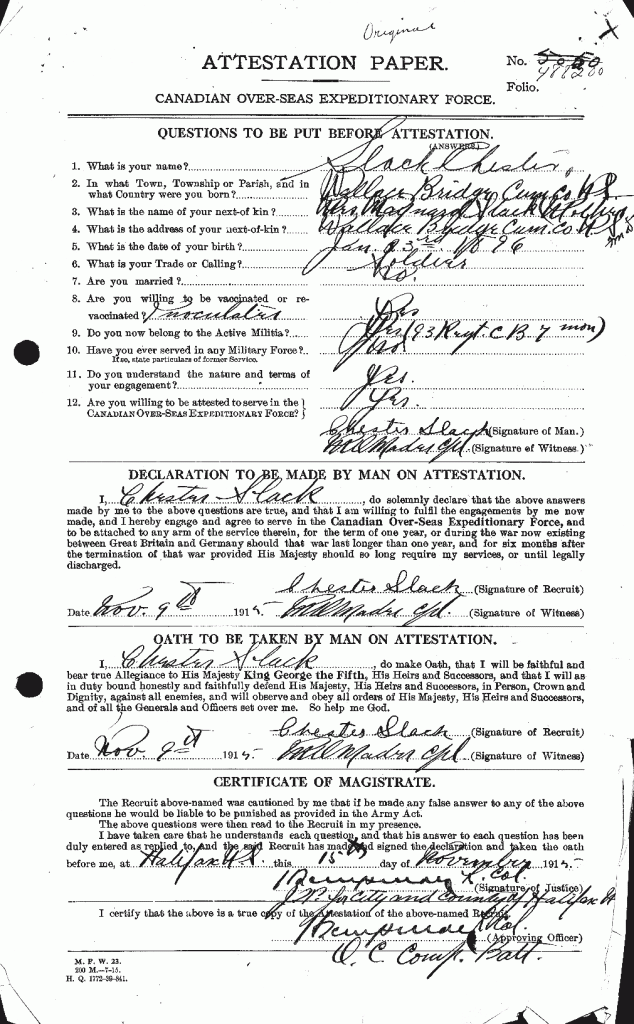 Original
ATTESTATION PAPER.
No. 5050
Folio.
CANADIAN OVER-SEAS EXPEDITIONARY FORCE.
QUESTIONS TO BE PUT BEFORE ATTESTATION.
(ANSWERS)
1. What is your name? Slack Chester,
2. In what Town, Township or Parish, and in
what Country were you born? Wallace Bridge Cum. Co. N.S.
3. What is the name of your next-of-kin? Mrs. Maynard Slack Mother
4. What is the address of your next-of-kin? Wallace Bridge Cum. Co. N.S.
5. What is the date of your birth? Jan. 23rd 1896
6. What is your Trade or Calling? Soldier
7. Are you married? No.
8. Are you willing to be vaccinated or re-
vaccinated? Inoculated Yes
9. Do you now belong to the Active Militia? Yes (93 Regt. C B 7 mon)
10. Have you ever served in any Military Force?
If so, state particulars of former Service.
11. Do you understand the nature and terms of
your engagement? Yes.
12. Are you willing to be attested to serve in the
CANADIAN OVER-SEAS EXPEDITIONARY FORCE? Yes.
Chester Slack (Signature of Man.)
(Signature of Witness)
DECLARATION TO BE MADE BY MAN ON ATTESTATION.
I, Chester Slack, do solemnly declare that the above answers
made by me to the above questions are true, and that I am willing to fulfil the engagements by me now
made, and I hereby engage and agree to serve in the Canadian Over-Seas Expeditionary Force, and
to be attached to any arm of the service therein, for the term of one year, or during the war now existing
between Great Britain and Germany should that war last longer than one year, and for six months after
the termination of that war provided His Majesty should so long require my services, or until legally
discharged.
Chester Slack (Signature of Recruit)
Date Nov. 9th 1915. Cpl. (Signature of Witness)
OATH TO BE TAKEN BY MAN ON ATTESTATION.
I, Chester Slack, do make Oath, that I will be faithful and
bear true Allegiance to His Majesty King George the Fifth, His Heirs and Successors, and that I will as
in duty bound honestly and faithfully defend His Majesty, His Heirs and Successors, in Person, Crown and
Dignity, against all enemies, and will observe and obey all orders of His Majesty, His Heirs and Successors,
and of all the Generals and Officers set over me. So help me God.
Chester Slack (Signature of Recruit)
Date Nov. 9th 1915. Cpl. (Signature of Witness)
CERTIFICATE OF MAGISTRATE.
The Recruit above-named was cautioned by me that if he made any false answer to any of the above
questions he would be liable to be punished as provided in the Army Act.
The above questions were then read to the Recruit in my presence.
I have taken care that he understands each question, and that his answer to each question has been
duly entered as replied to, and the said Recruit has made and signed the declaration and taken the oath
before me, at Halifax N.S. this 15th day of November 1915.
Lt. Col. (Signature of Justice)
J.P. for City and County of Halifax
I certify that the above is a true copy of the Attestation of the above-named Recruit.
(Approving Officer)
O. C. Comp. Batt.
M. F. W. 23.
200 M.—7-15.
H. Q. 1772-39-841.